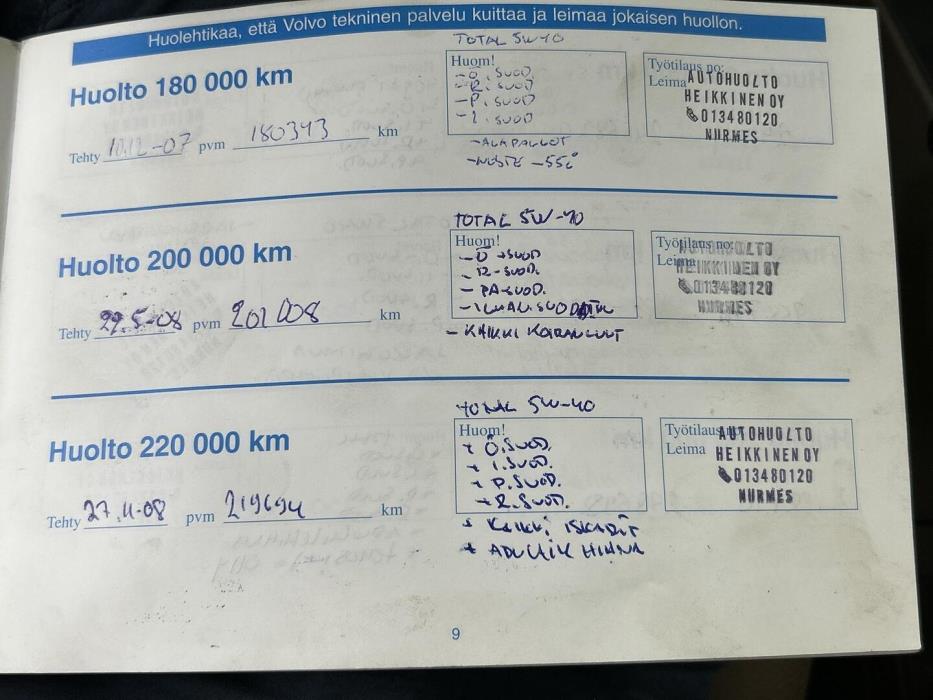 Huolehtikaa, että Volvo tekninen palvelu kuittaa ja leimaa jokaisen huollon.
TOTAL 5W40
Huolto 180 000 km
Huom!
-Ö.SUOD.
-R.SUOD
-P.SUOD
-I.SUOD
Työtilaus no:
Leima
AUTOHUOLTO
HEIKKINEN OY
013480120
NURMES
Tehty 10.12-07 pvm 180343 km
-ALAPALLOT
-NESTE -55C
TOTAL 5W-40
Huolto 200 000 km
Huom!
-Ö-SUOD
-R-SUOD.
-PA-SUOD.
Työtilaus no:
Leima
AUTOHUOLTO
HEIKKINEN OY
013480120
NURMES
Tehty 22.5-08 pvm 201008 km
- KAIKKI
TOTAL 5W-40
Huolto 220 000 km
Huom!
+ Ö.SUOD.
+ I.SUOD.
+ P.SUOD.
+ R.SUOD.
Työtilaus no:
Leima
AUTOHUOLTO
HEIKKINEN OY
013480120
NURMES
Tehty 27.11-08 pvm 219694 km
+ KAIKKI ISKARIT
+ HIHNA
9